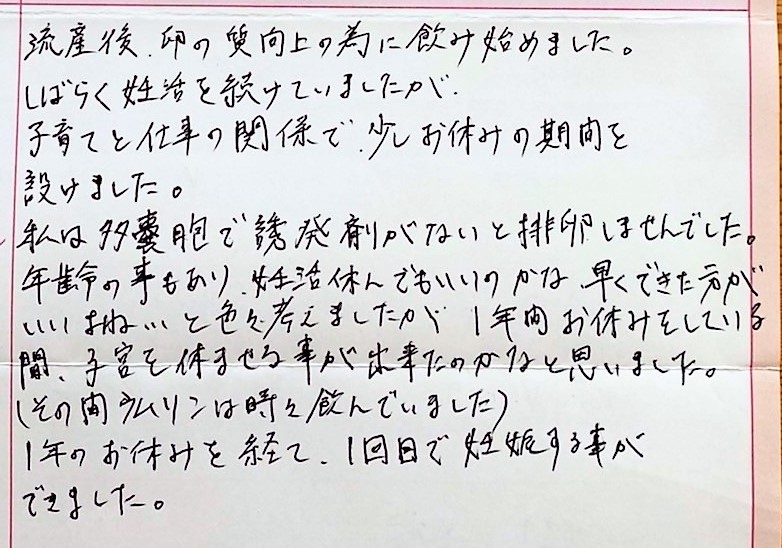 流産後、卵の質向上の為に飲み始めました。
しばらく妊活を続けていましたが、
子育てと仕事の関係で、少しお休みの期間を
設けました。
私は多嚢胞で誘発剤がないと排卵しませんでした。
年齢の事もあり、妊活休んでもいいのかな、早くできた方が
いいよね…と色々考えましたが、1年間お休みをしている
間、子宮を休ませる事が出来たのかなと思いました。
(その間ラムリンは時々飲んでいました)
1年のお休みを経て、1回目で妊娠する事が
できました。